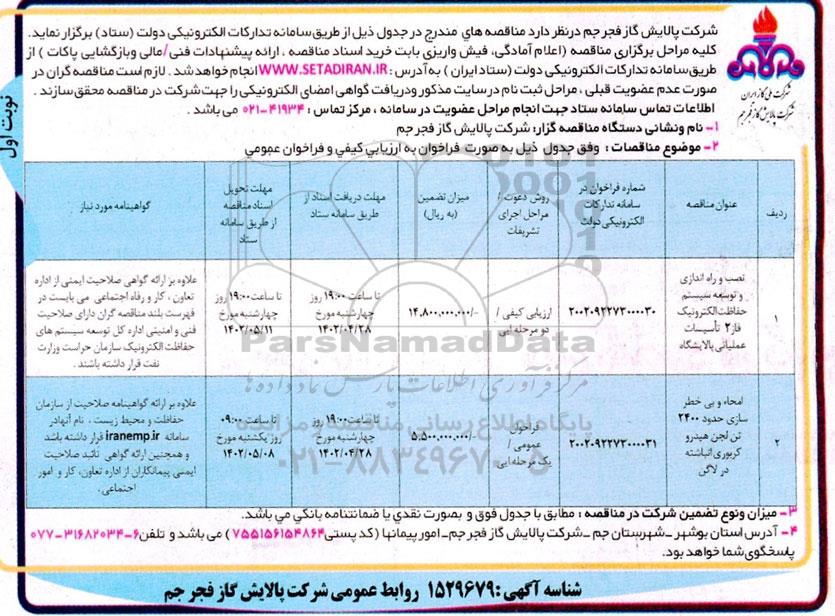 شرکت پالایش گاز فجر جم درنظر دارد مناقصه هاي مندرج در جدول ذیل از طریق سامانه تدارکات الکترونیکی دولت (ستاد) برگزار نماید.
کلیه مراحل برگزاری مناقصه (اعلام آمادگی، فیش واریزی بابت خرید اسناد مناقصه ، ارائه پیشنهادات فنی/مالی وبازگشایی پاکات ) از
طریق سامانه تدارکات الکترونیکی دولت (ستاد ایران ) به آدرس : WWW.SETADIRAN.IR انجام خواهد شد . لازم است مناقصه گران در
صورت عدم عضویت قبلی ، مراحل ثبت نام در سایت مذکور ودریافت گواهی امضای الکترونیکی را جهت شرکت در مناقصه محقق سازند .
اطلاعات تماس سامانه ستاد جهت انجام مراحل عضویت در سامانه ، مرکز تماس : ۴۱۹۳۴-۰۲۱ می باشد .
شرکت ملی گاز ایران
شرکت پالایش گاز فجر جم
نوبت اول
۱- نام ونشانی دستگاه مناقصه گزار: شرکت پالایش گاز فجر جم
۲- موضوع مناقصات : وفق جدول ذیل به صورت فراخوان به ارزیابي کیفي و فراخوان عمومي
ردیف
عنوان مناقصه
شماره فراخوان در
سامانه تدارکات
الکترونیکی دولت
روش دعوت /
مراحل اجرای
تشریفات
میزان تضمین
(به ریال)
مهلت دریافت اسناد از
طریق سامانه ستاد
مهلت تحویل
اسناد مناقصه
از طریق سامانه
ستاد
گواهینامه مورد نیاز
۱
نصب و راه اندازی
و توسعه سیستم
حفاظت الکترونیک
فاز۲ تأسیسات
عملیاتی پالایشگاه
۲۰۰۲۰۹۲۲۷۳۰۰۰۰۳۰
ارزیابی کیفی /
دو مرحله ایی
۱۴،۸۰۰،۰۰۰،۰۰۰/-
تا ساعت ۱۹:۰۰ روز
چهارشنبه مورخ
۱۴۰۲/۰۴/۲۸
تا ساعت ۱۹:۰۰ روز
چهارشنبه مورخ
۱۴۰۲/۰۵/۱۱
علاوه بر ارائه گواهی صلاحیت ایمنی از اداره
تعاون ، کار و رفاه اجتماعی می بایست در
فهرست بلند مناقصه گران دارای صلاحیت
فنی و امنیتی اداره کل توسعه سیستم های
حفاظت الکترونیک سازمان حراست وزارت
نفت قرار داشته باشند .
۲
امحاء و بی خطر
سازی حدود ۲۴۰۰
تن لجن هیدرو
کربوری انباشته
در لاگن
۲۰۰۲۰۹۲۲۷۳۰۰۰۰۳۱
فراخوان
عمومی /
یک مرحله ایی
۵،۵۰۰،۰۰۰،۰۰۰/-
تا ساعت ۱۹:۰۰ روز
چهارشنبه مورخ
۱۴۰۲/۰۴/۲۸
تا ساعت ۰۹:۰۰
روز یکشنبه مورخ
۱۴۰۲/۰۵/۰۸
علاوه بر ارائه گواهینامه صلاحیت از سازمان
حفاظت و محیط زیست ، نام آنهادر
سامانه iranemp.ir قرار داشته باشد
و همچنین ارائه گواهی تائید صلاحیت
ایمنی پیمانکاران از اداره تعاون، کار و امور
اجتماعی.
ParsNamadData
مرکز فرآوری اطلاعات پارس نماد داده ها
پایگاه اطلاع رسانی مناقصه و مزایده
۰۲۱-۸۸۳۴۹۶۷۰-۵
۳- میزان ونوع تضمین شرکت در مناقصه : مطابق با جدول فوق و بصورت نقدي یا ضمانتنامه بانکي مي باشد.
۴- آدرس استان بوشهر _شهرستان جم _شرکت پالایش گاز فجر جم_امور پیمانها (کد پستی ۷۵۵۱۵۶۱۵۴۸۶۴) می باشد و تلفن ۶-۳۱۶۸۲۰۳۴-۰۷۷
پاسخگوی شما خواهد بود.
شناسه آگهی : ۱۵۲۹۶۷۹ روابط عمومی شرکت پالایش گاز فجر جم